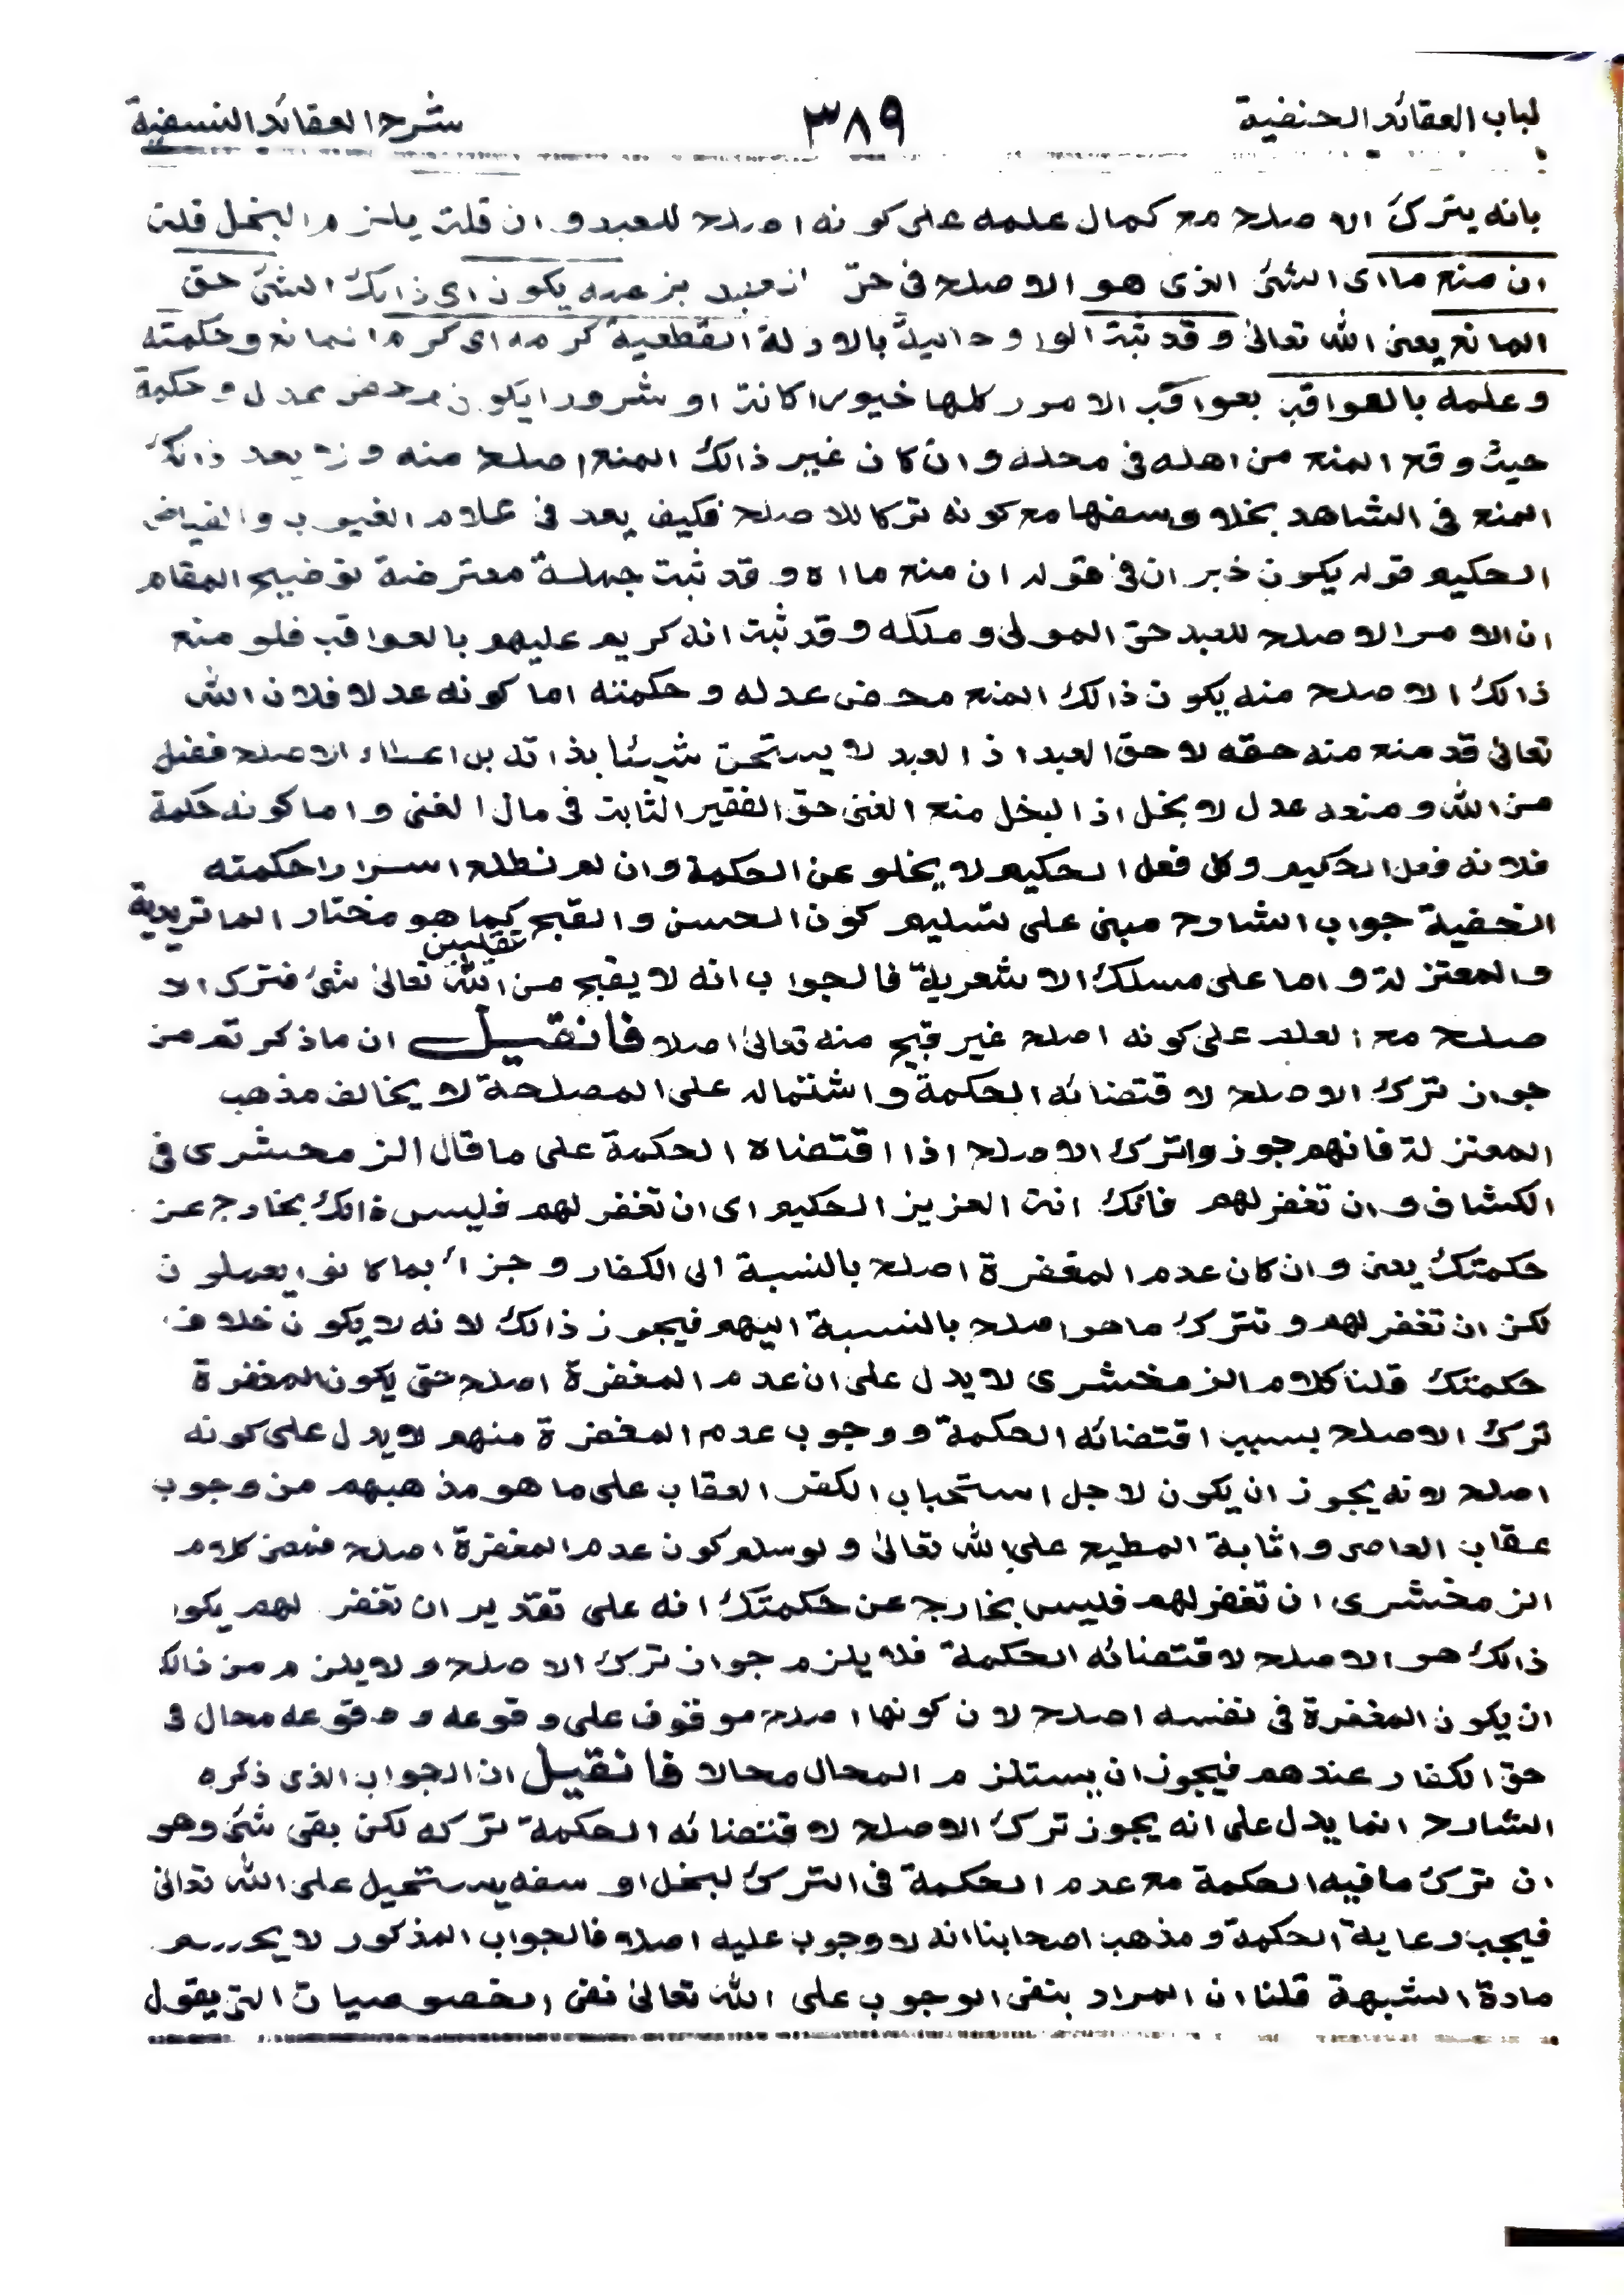 لباب العقائد الحنفية ٣٨٩ شرح العقائد النسفية
بانه يترك الاصلح مع كمال علمه على كونه اصلح للعبد وان قلت يلزم البخل قلت
ان منع ما اى الشئ الذى هو الاصلح فى حق العبد بزعمه يكون اى ذالك الشئ حق
المانع يعنى الله تعالىٰ وقد ثبت الواو حالية بالادلة القطعية كرمه اى كرم المانع وحكمته
وعلمه بالعواقب بعواقب الامور كلها خيورا كانت او شرورا يكون محض عدل وحكمة
حيث وقع المنع من اهله فى محله وان كان غير ذالك المنع اصلح منه ولا يعد ذالك
المنع فى الشاهد بخلا وسفها مع كونه تركا للاصلح فكيف يعد فى علام الغيوب والفياض
الحكيم قوله يكون خبر ان فى قوله ان منع ما اه وقد ثبت جملة معترضة توضيح المقام
ان الامر الاصلح للعبد حق المولى وملكه وقد ثبت انه كريم عليهم بالعواقب فلو منع
ذالك الاصلح منه يكون ذالك المنع محض عدله وحكمته اما كونه عدلا فلان الله
تعالى قد منع منه حقه لا حق العبد اذ العبد لا يستحق شيئا بذاته بل اعطاء الاصلح فضل
من الله ومنعه عدل لا بخل اذ البخل منع الغنى حق الفقير الثابت فى مال الغنى واما كونه حكمة
فلانه فعل الحكيم وكل فعل الحكيم لا يخلو عن الحكمة وان لم نطلع اسرار احكمته
الخفية جواب الشارح مبنى على تسليم كون الحسن والقبح عقليين كما هو مختار الماتريدية
والمعتزلة واما على مسلك الاشعرية فالجواب انه لا يقبح من الله تعالىٰ شئ فترك الا
صلح مع العلم على كونه اصلح غير قبيح منه تعالىٰ اصلا فان قيل ان ما ذكرتم من
جواز ترك الاصلح لاقتضائه الحكمة واشتماله على المصلحة لا يخالف مذهب
المعتزلة فانهم جوزوا ترك الاصلح اذا اقتضاه الحكمة على ما قال الزمحشرى فى
الكشاف وان تغفر لهم فانك انت العزيز الحكيم اى ان تغفر لهم فليس ذالك بخارج عن
حكمتك يعنى وان كان عدم المغفرة اصلح بالنسبة الى الكفار وجزاء بما كانوا يعملون
لكن ان تغفر لهم وتترك ما هو اصلح بالنسبة اليهم فيجوز ذالك لانه لا يكون خلاف
حكمتك قلنا كلام الزمخشرى لا يدل على ان عدم المغفرة اصلح حتى يكون المغفرة
ترك الاصلح بسبب اقتضائه الحكمة ووجوب عدم المغفرة منهم لا يدل على كونه
اصلح لانه يجوز ان يكون لاجل استحباب الكفر العقاب على ما هو مذهبهم من وجوب
عقاب العاصى واثابة المطيع على الله تعالىٰ ولو سلم كون عدم المغفرة اصلح فمعنى كلام
الزمخشرى ان تغفر لهم فليس بخارج عن حكمتك انه على تقدير ان تغفر لهم يكون
ذالك هو الاصلح لاقتضائه الحكمة فلا يلزم جواز ترك الاصلح ولا يلزم من ذالك
ان يكون المغفرة فى نفسه اصلح لان كونها اصلح موقوف على وقوعه و وقوعه محال فى
حق الكفار عندهم فيجوز ان يستلزم المحال محالا فان قيل ان الجواب الذى ذكره
الشارح انما يدل على انه يجوز ترك الاصلح لاقتضائه الحكمة تركه لكن بقى شئ وهو
ان ترك ما فيه الحكمة مع عدم الحكمة فى الترك لبخل او سفه يستحيل على الله تعالىٰ
فيجب رعاية الحكمة ومذهب اصحابنا انه لا وجوب عليه اصلا فالجواب المذكور لا يحسم
مادة الشبهة قلنا ان المراد بنفى الوجوب على الله تعالىٰ نفى الخصوصيات التى يقول